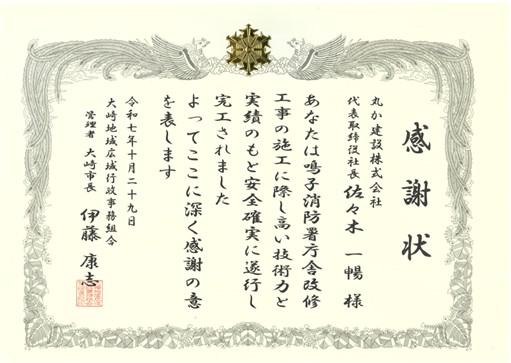 感謝状
丸か建設株式会社
代表取締役社長 佐々木 一暢 様
あなたは鳴子消防署庁舎改修
工事の施工に際し高い技術力と
実績のもと安全確実に遂行し
完工されました
よってここに深く感謝の意
を表します
令和七年十月二十九日
大崎地域広域行政事務組合
管理者 大崎市長 伊藤 康志